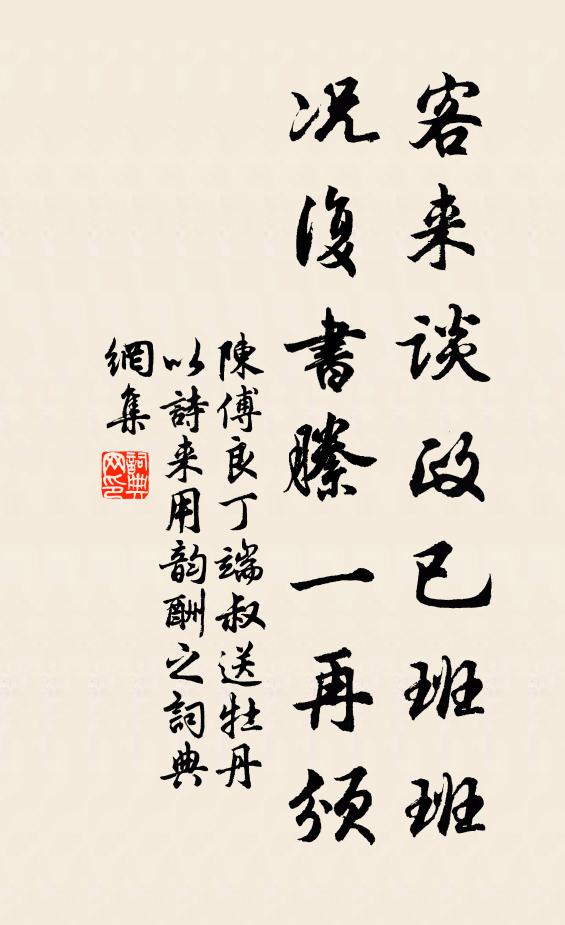 客来談政已班班
况復書縢一再頒
陳傅良丁端叔送牡丹
以詩来用韵酬之詞典
網集
詞典網印